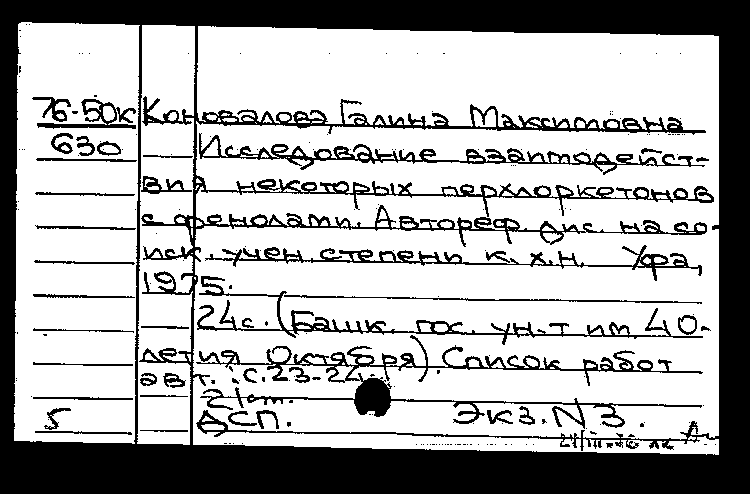 76-50к Коновалова, Галина Максимовна
630 Исследование взаимодейст-
вия некоторых перхлоркетонов
с фенолами. Автореф. дис. на со-
иск. учен. степени к. х. н. Уфа,
1975.
24 с. (Башк. гос. ун-т им. 40-
летия Октября). Список работ
авт.: с. 23-24
5 ДСП. Экз. N 3.